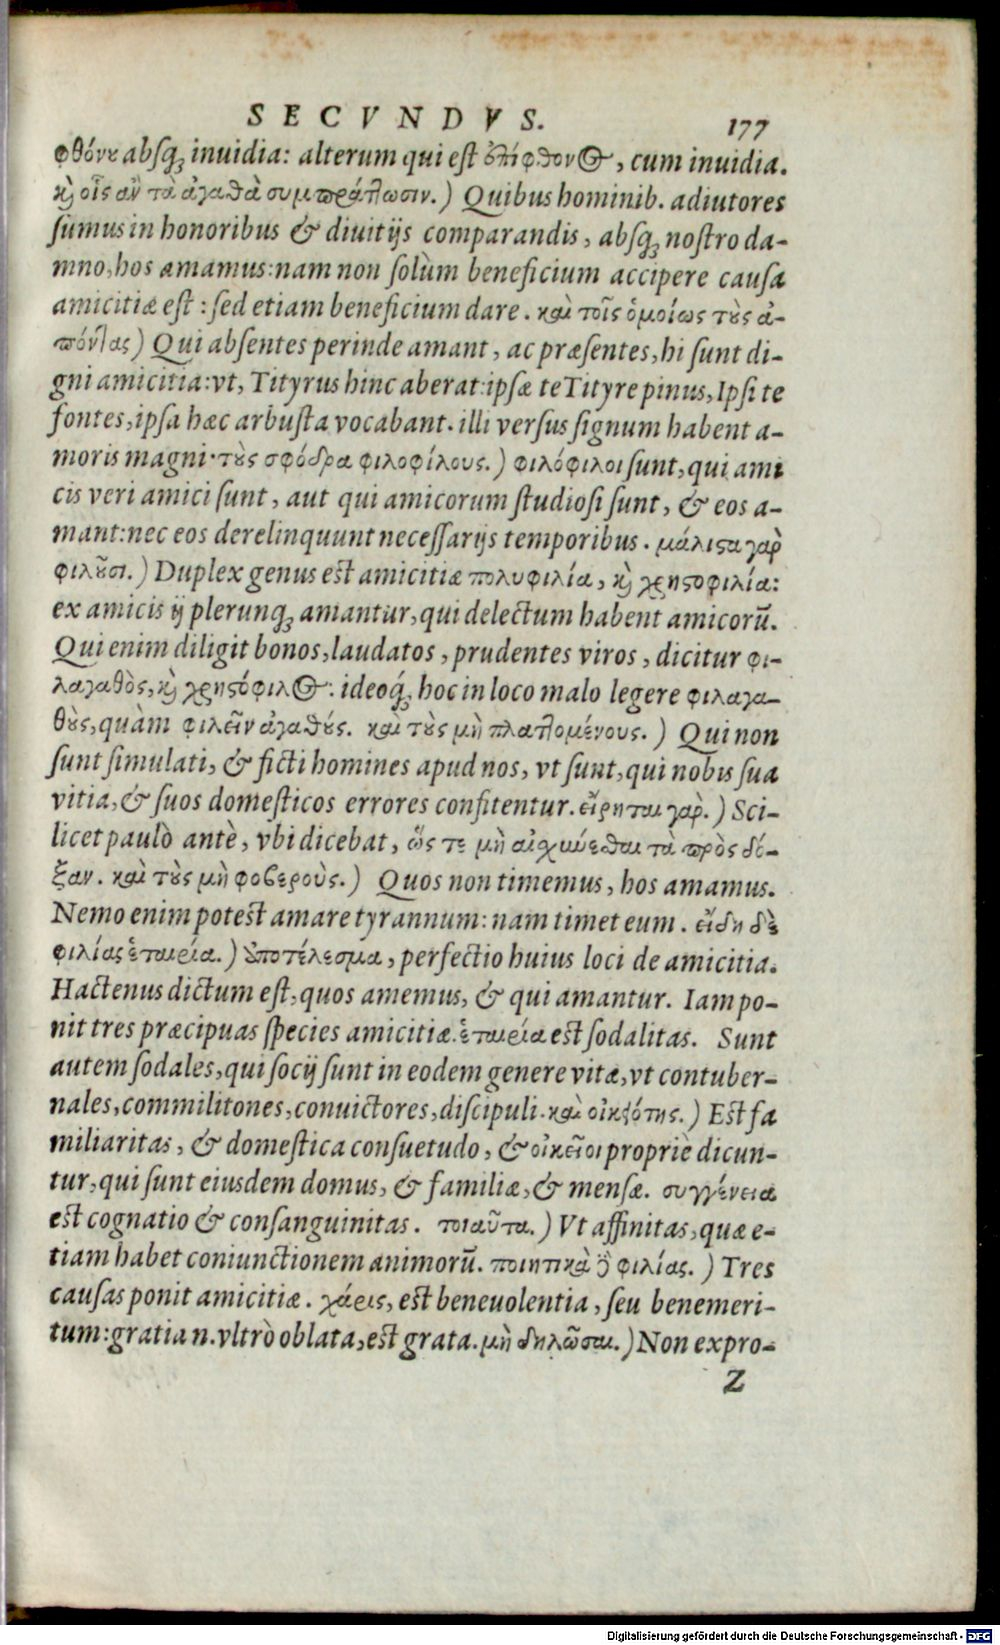 SECVNDVS. 177
φθόνȣ absq́ꝫ inuidia: alterum qui est ἐπίφθονος, cum inuidia.
κ̀ οἷς ἂν τὰ ἀγαθὰ συμπράττωσιν.) Quibus hominib. adiutores
ſumus in honoribus & diuitijs comparandis, absqꝫ noſtro da-
mno, hos amamus: nam non ſolùm beneficium accipere cauſa
amicitiæ eſt: ſed etiam beneficium dare. καὶ τοῖς ὁμοίως τȣ̀ς ἀ-
πόντας) Qui abſentes perinde amant, ac præſentes, hi ſunt di-
gni amicitia: vt, Tityrus hinc aberat: ipſæ te Tityre pinus, Ipſi te
fontes, ipſa hæc arbuſta vocabant. illi verſus ſignum habent a-
moris magni. τȣ̀ς σφόδρα φιλοφίλους.) φιλόφιλοι ſunt, qui ami
cis veri amici ſunt, aut qui amicorum ſtudioſi ſunt, & eos a-
mant: nec eos derelinquunt neceſſarijs temporibus. μάλιϛα γὰρ
φιλȣ͂σι.) Duplex genus eſt amicitiæ πολυφιλία, κ̀ χρηϛοφιλία:
ex amicis ij plerunqꝫ amantur, qui delectum habent amicorū.
Qui enim diligit bonos, laudatos, prudentes viros, dicitur φι-
λαγαθὸς, κ̀ χρηϛόφιλος: ideoq́ꝫ hoc in loco malo legere φιλαγα-
θȣ̀ς, quàm φιλεῖν ἀγαθȣ́ς. καὶ τȣ̀ς μὴ πλαττομένους.) Qui non
ſunt ſimulati, & ficti homines apud nos, vt ſunt, qui nobis ſua
vitia, & ſuos domeſticos errores confitentur. εἴρηται γὰρ.) Sci-
licet paulò antè, vbi dicebat, ὥς τε μὴ αἰσχύνεσθαι τὰ πρὸς δό-
ξαν. καὶ τȣ̀ς μὴ φοβεροὺς.) Quos non timemus, hos amamus.
Nemo enim poteſt amare tyrannum: nam timet eum. εἴδη δὲ
φιλίας ἑταιρία.) ἀποτέλεσμα, perfectio huius loci de amicitia.
Hactenus dictum eſt, quos amemus, & qui amantur. Iam po-
nit tres præcipuas ſpecies amicitiæ. ἑταιρία eſt ſodalitas. Sunt
autem ſodales, qui ſocij ſunt in eodem genere vitæ, vt contuber-
nales, commilitones, conuictores, diſcipuli. καὶ οἰκειότης.) Eſt fa
miliaritas, & domeſtica conſuetudo, & οἰκεῖοι propriè dicun-
tur, qui ſunt eiusdem domus, & familiæ, & menſæ. συγγένεια
eſt cognatio & conſanguinitas. τοιαῦτα.) Vt affinitas, quæ e-
tiam habet coniunctionem animorū. ποιητικὰ δὲ φιλίας.) Tres
cauſas ponit amicitiæ. χάρις, eſt beneuolentia, ſeu benemeri-
tum: gratia n. vltrò oblata, eſt grata. μὴ δηλῶσαι.) Non expro-
Z
Digitalisierung gefördert durch die Deutsche Forschungsgemeinschaft - DFG